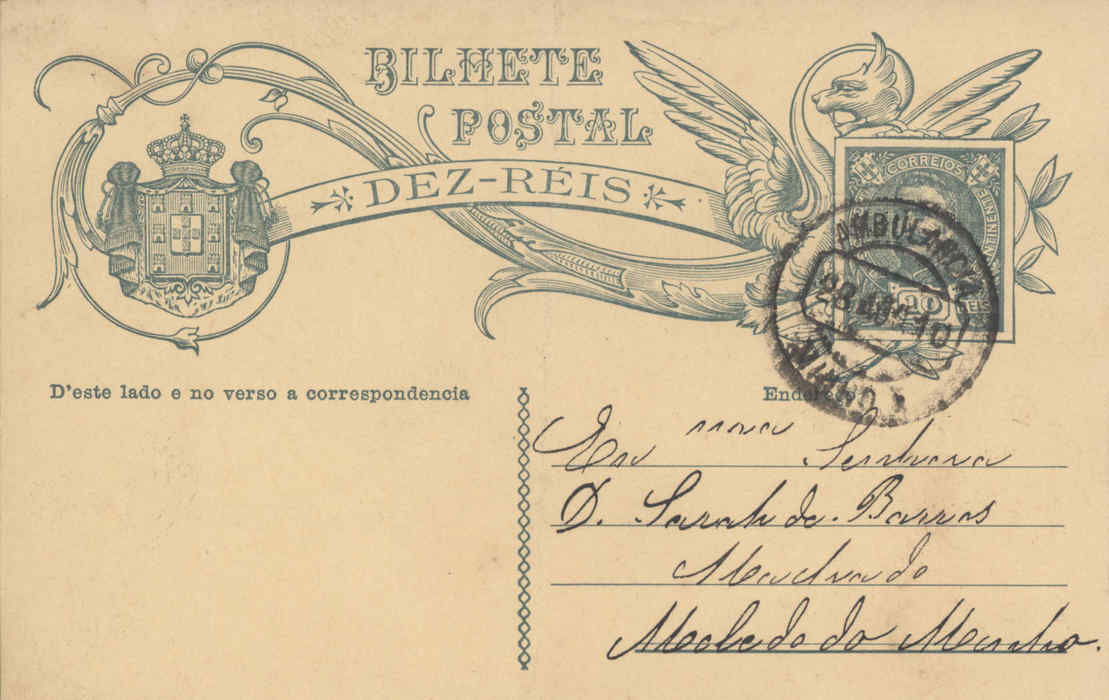 BILHETE
POSTAL
DEZ-RÉIS
CORREIOS
10
REIS
AMBULANCIA
28 10
D'este lado e no verso a correspondencia
Endereço
Exma Senhora
D. Sarah de Barros
Machado
Moledo do Minho.